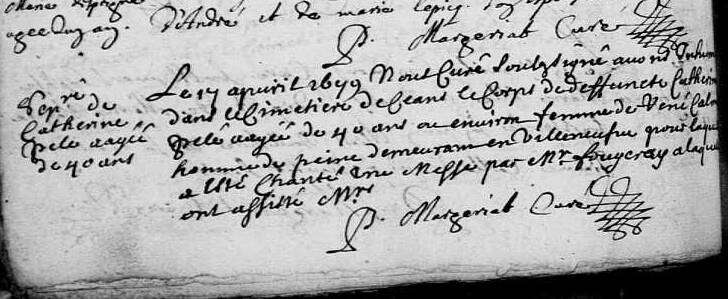 agee
d'André et de marie
P. Margeriat Curé
Sep.re de
Catherine
pelé aagéé
de 40 ans
Le 17 apuril 1679 Nous Curé soubsigné auons Inhum
dans le Cimetiere de Ceans le Corps de deffuncte Catherin
pelé aagéé de 40 ans ou enuiron femme de René
homme de peine demeurant en Villeneufue pour laque
a esté Chanté Une Messe par Mr fougeray a laque
ont assisté Mrs
P. Margeriat Curé